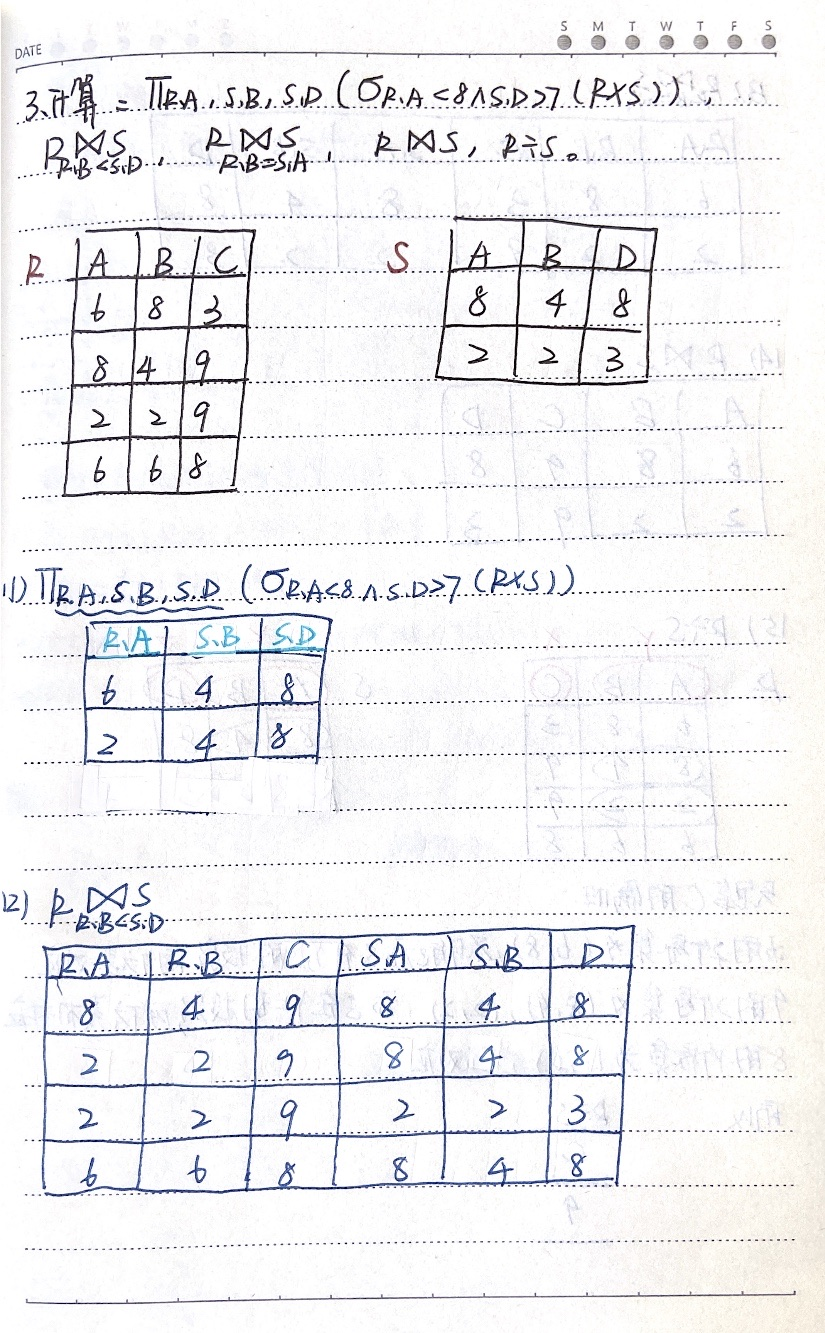 S M T W T F S
DATE
3.计算 = ΠR.A, S.B, S.D (σR.A<8∧S.D>7 (R×S)),
R⋈S R.B<S.D, R⋈S R.B=S.A, R⋈S, R÷S。
R S
A B C
A B D
6 8 3
8 4 8
8 4 9
2 2 3
2 2 9
6 6 8
(1) ΠR.A, S.B, S.D (σR.A<8∧S.D>7 (R×S))
R.A S.B S.D
6 4 8
2 4 8
(2) R⋈S R.B<S.D
R.A R.B C S.A S.B D
8 4 9 8 4 8
2 2 9 8 4 8
2 2 9 2 2 3
6 6 8 8 4 8